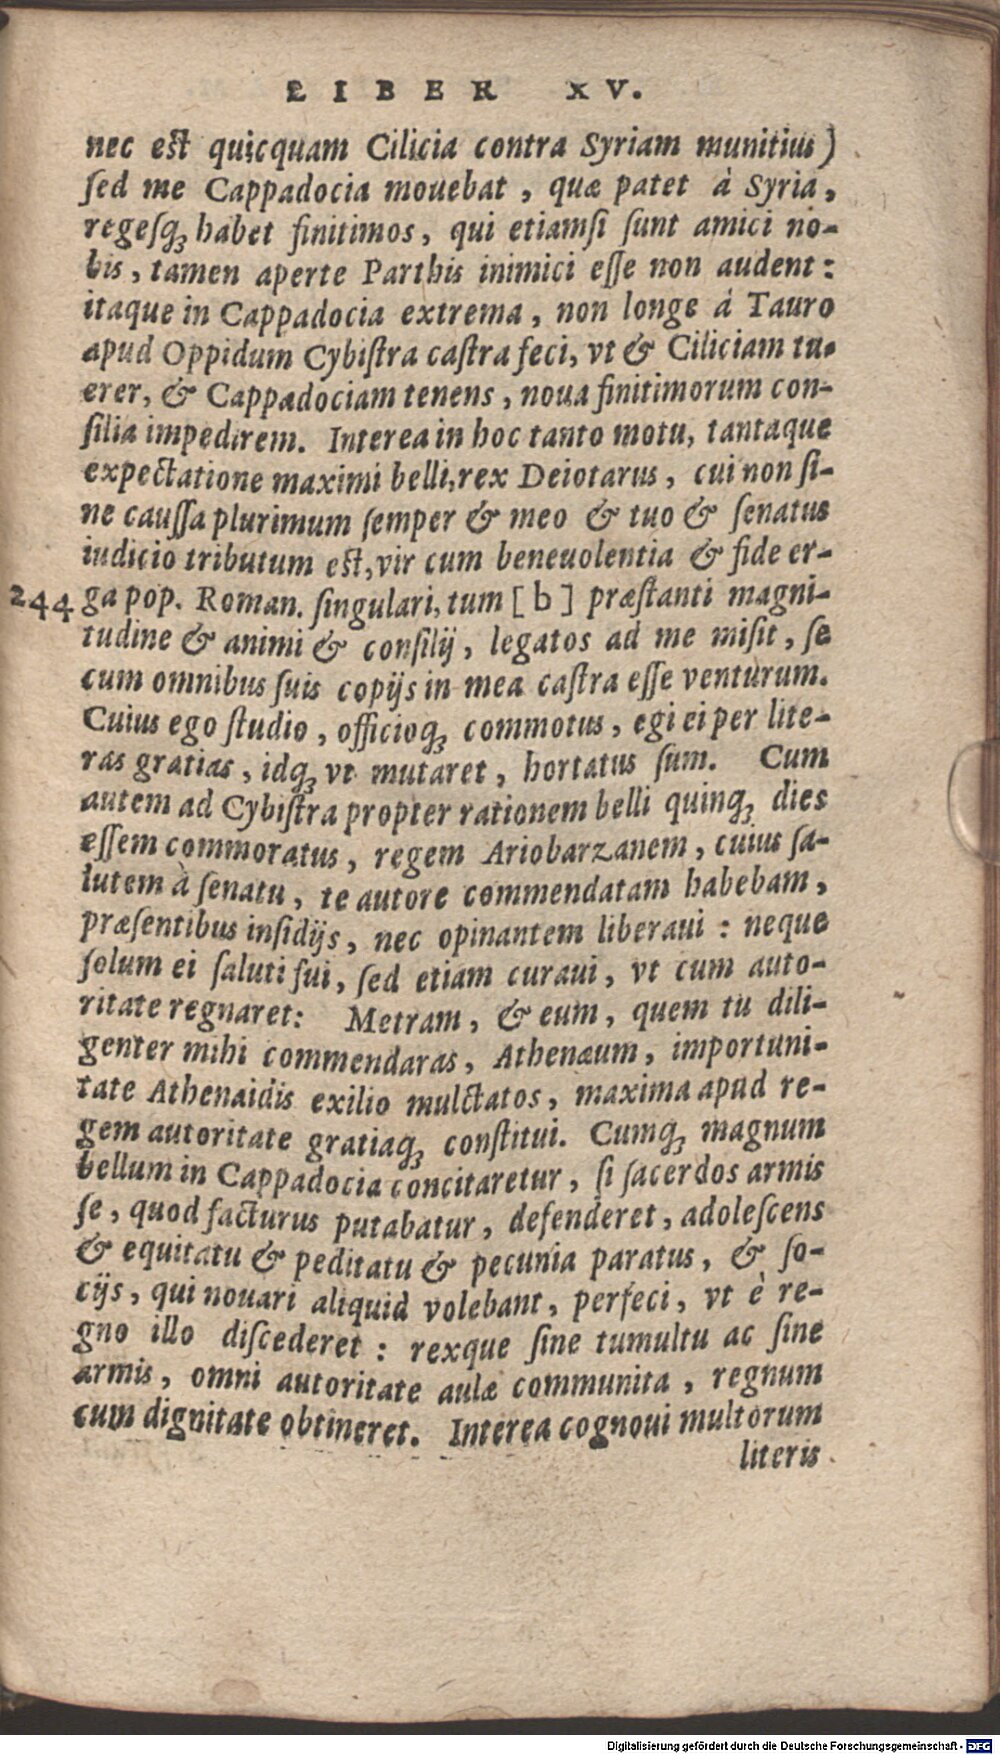 LIBER XV.
nec est quicquam Cilicia contra Syriam munitius)
sed me Cappadocia mouebat, quæ patet à Syria,
regesq; habet finitimos, qui etiamsi sunt amici no-
bis, tamen aperte Parthis inimici esse non audent:
itaque in Cappadocia extrema, non longe à Tauro
apud Oppidum Cybistra castra feci, vt & Ciliciam tu-
erer, & Cappadociam tenens, noua finitimorum con-
silia impedirem. Interea in hoc tanto motu, tantaque
expectatione maximi belli, rex Deiotarus, cui non si-
ne caussa plurimum semper & meo & tuo & senatus
iudicio tributum est, vir cum beneuolentia & fide er-
244 ga pop. Roman. singulari, tum [b] præstanti magni-
tudine & animi & consilij, legatos ad me misit, se
cum omnibus suis copijs in mea castra esse venturum.
Cuius ego studio, officioq; commotus, egi ei per lite-
ras gratias, idq; vt mutaret, hortatus sum. Cum
autem ad Cybistra propter rationem belli quinq; dies
essem commoratus, regem Ariobarzanem, cuius sa-
lutem à senatu, te autore commendatam habebam,
præsentibus insidijs, nec opinantem liberaui: neque
solum ei saluti fui, sed etiam curaui, vt cum auto-
ritate regnaret: Metram, & eum, quem tu dili-
genter mihi commendaras, Athenæum, importuni-
tate Athenaidis exilio mulctatos, maxima apud re-
gem autoritate gratiaq; constitui. Cumq; magnum
bellum in Cappadocia concitaretur, si sacerdos armis
se, quod facturus putabatur, defenderet, adolescens
& equitatu & peditatu & pecunia paratus, & so-
cijs, qui nouari aliquid volebant, perfeci, vt è re-
gno illo discederet: rexque sine tumultu ac sine
armis, omni autoritate aulæ communita, regnum
cum dignitate obtineret. Interea cognoui multorum
literis
Digitalisierung gefördert durch die Deutsche Forschungsgemeinschaft - DFG